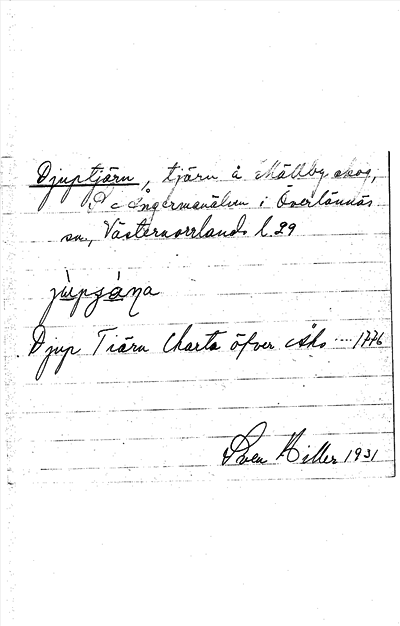 Djuptjärn, tjärn å Mällby skog,
S Ångermanälven i Överlännäs
sn, Västernorrlands l. 29
jùpʒǻna
Djup Tiärn Charta öfver Åhs .... 1776
Sven Hiller 1931